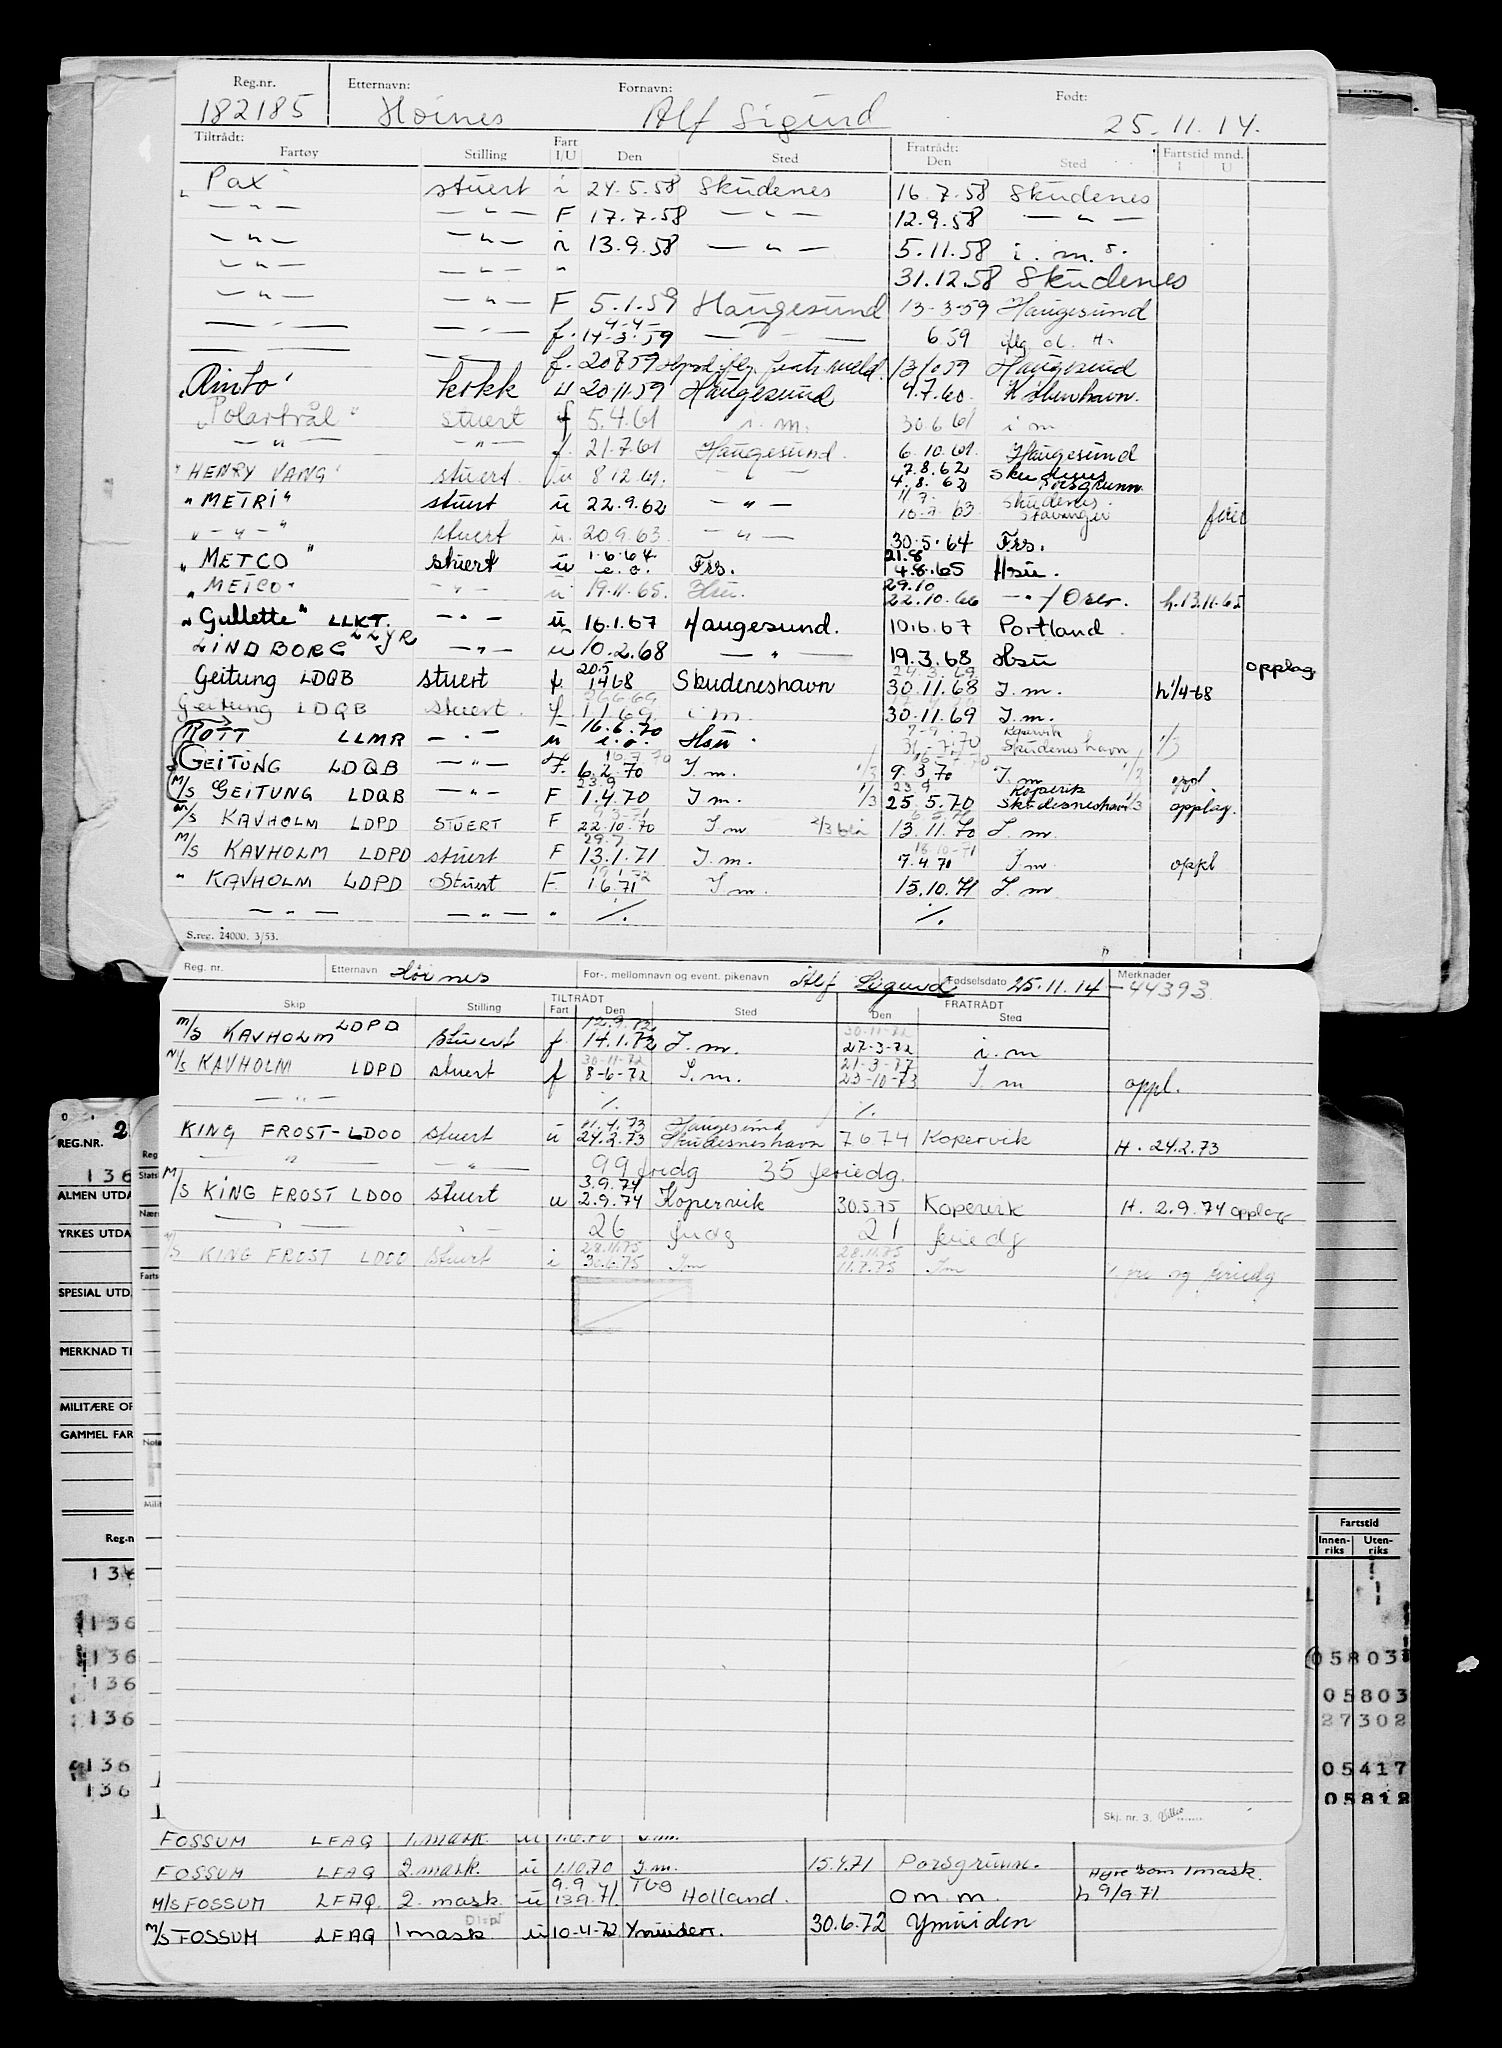 Reg.nr. Etternavn: Fornavn: Født:
182185 Høines Alf Sigurd 25.11.14.
Tiltrådt: Fart Fratrådt: Fartstid mnd.
Fartøy Stilling I/U Den Sted Den Sted I U
"Pax" stuert i 24.5.58 Skudenes 16.7.58 Skudenes
— " — — " — F 17.7.58 — " — 12.9.58 — " —
— " — — " — i 13.9.58 — " — 5.11.58 i.m.
— " — — " — " 31.12.58 Skudenes
— " — — " — F 5.1.59 Haugesund 13-3-59 Haugesund
4-4-
— — — " — f. 14-3-59 — 6 59
— — — f. 20859 13/1059 Haugesund
"Rinto" kokk u 20.11.59 Haugesund 4.7.60. København.
"Polartrål" stuert f 5.4.61 i.m. 30.6.61 i m
— " — — " — f. 21.7.61 Haugesund. 6.10.61. Haugesund
7.8.62 Skudenes
"HENRY VANG" stuert. u 8 12.61. — " — 4.8.62 Porsgrunn
"METRI" stuert u 22.9.62 — " — 63 Skudenes. Stavanger
— " — stuert u. 20.9.63 — " — 30.5.64 Frs.
1.6.64. 21.8
"METCO" stuert u e.o. Frs. 4.8.65 Hsu.
29.10
"METCO" — " — u 19.11.65. Hsu. 22.10.66 — " — / Oslo. h.13.11.65
"Gullette" LLKT. — " — u 16.1.67 Haugesund. 10.6.67 Portland.
LINDBORG LLYR — " — u 10.2.68 — " — 19.3.68 Hsu opplag
20.5 24.3.69
Geitung LDQB stuert f. 1468 Skudeneshavn 30.11.68 I.m. h 1/4-68
Geitung LDQB stuert. f 1.1.69. i m. 30.11.69 I.m.
16.6.70 Kopervik
ROTT LLMR — " — u e.o. Hsu. 31-7.70 Skudeneshavn 1/3
16.7.70
GEITUNG LDQB — " — F. 6.2.70 I.m. 1/3 9.3.70 I.m 1/2 oppl
23.9 23.9 Kopervik
M/S GEITUNG LDQB — " — F 1.4.70 I m. 1/3 25.5.70 Skudesneshavn 1/3 opplag.
M/S KAVHOLM LDPD STUERT F 22.10.70 I.m 13.11.70 I.m.
29.7 18-10-71
M/S KAVHOLM LDPD stuert F 13.1.71 I.m. 7.4.71 I.m oppl
" KAVHOLM LDPD Stuert F 1671 I.m. 15.10.71 I.m
— " — — " — " ./. ./.
S.reg. 24000. 3/53.
Reg. nr. Etternavn Høines For-, mellomnavn og event. pikenavn Alf Sigurd Fødselsdato 25.11.14 Merknader
44393
TILTRÅDT FRATRÅDT
Skip Stilling Fart Den Sted Den Sted
12.9.72 30-11-72
M/S KAVHOLM LDPD stuert f 14.1.72 I.m. 27-3-72 i.m
30-11-72 21-3-77
M/S KAVHOLM LDPD stuert f 8-6-72 I.m. 23-10-73 I.m oppl.
— " — ./. ./.
11.4.73 Haugesund
KING FROST-LDOO stuert u 24.2.73 Skudesneshavn 7674 Kopervik H. 24.2.73
— " — — " — 99 fridg 35 feriedg.
3.9.74
M/S KING FROST LDOO stuert u 2.9.74 Kopervik 30.5.75 Kopervik H. 2.9.74 opplag
— " — — " — 26 fridg 21 feriedg
28.11.75 28.11.75
M/S KING FROST LDOO stuert i 30.6.75 Im 11.7.75 Im og feriedg
Skj. nr. 3.
REG.NR. 2
136
ALMEN UTDA
YRKES UTDA
SPESIAL UTD.
MERKNAD TI
MILITÆRE OP
GAMMEL FAR
Reg
Stats
Nær
Farts
Note
Milit
Reg.n
136
136
136
136
136
136
136
Fartstid
Innen-riks Uten-riks
1
1
05803
05803
27302
05417
05812
FOSSUM LFAQ 1.mask. u 1.6.70 I.m.
FOSSUM LFAQ 2.mask. u 1.10.70 I.m. 15.4.71 Porsgrunn. Hyre som 1mask.
9.9 Tbg
M/S FOSSUM LFAQ. 2. mask u 13.9.71. Holland. o m m. h 9/9 71
Disp
M/S FOSSUM LFAQ 1mask u 10-4-72 Ymuiden. 30.6.72 Ymuiden